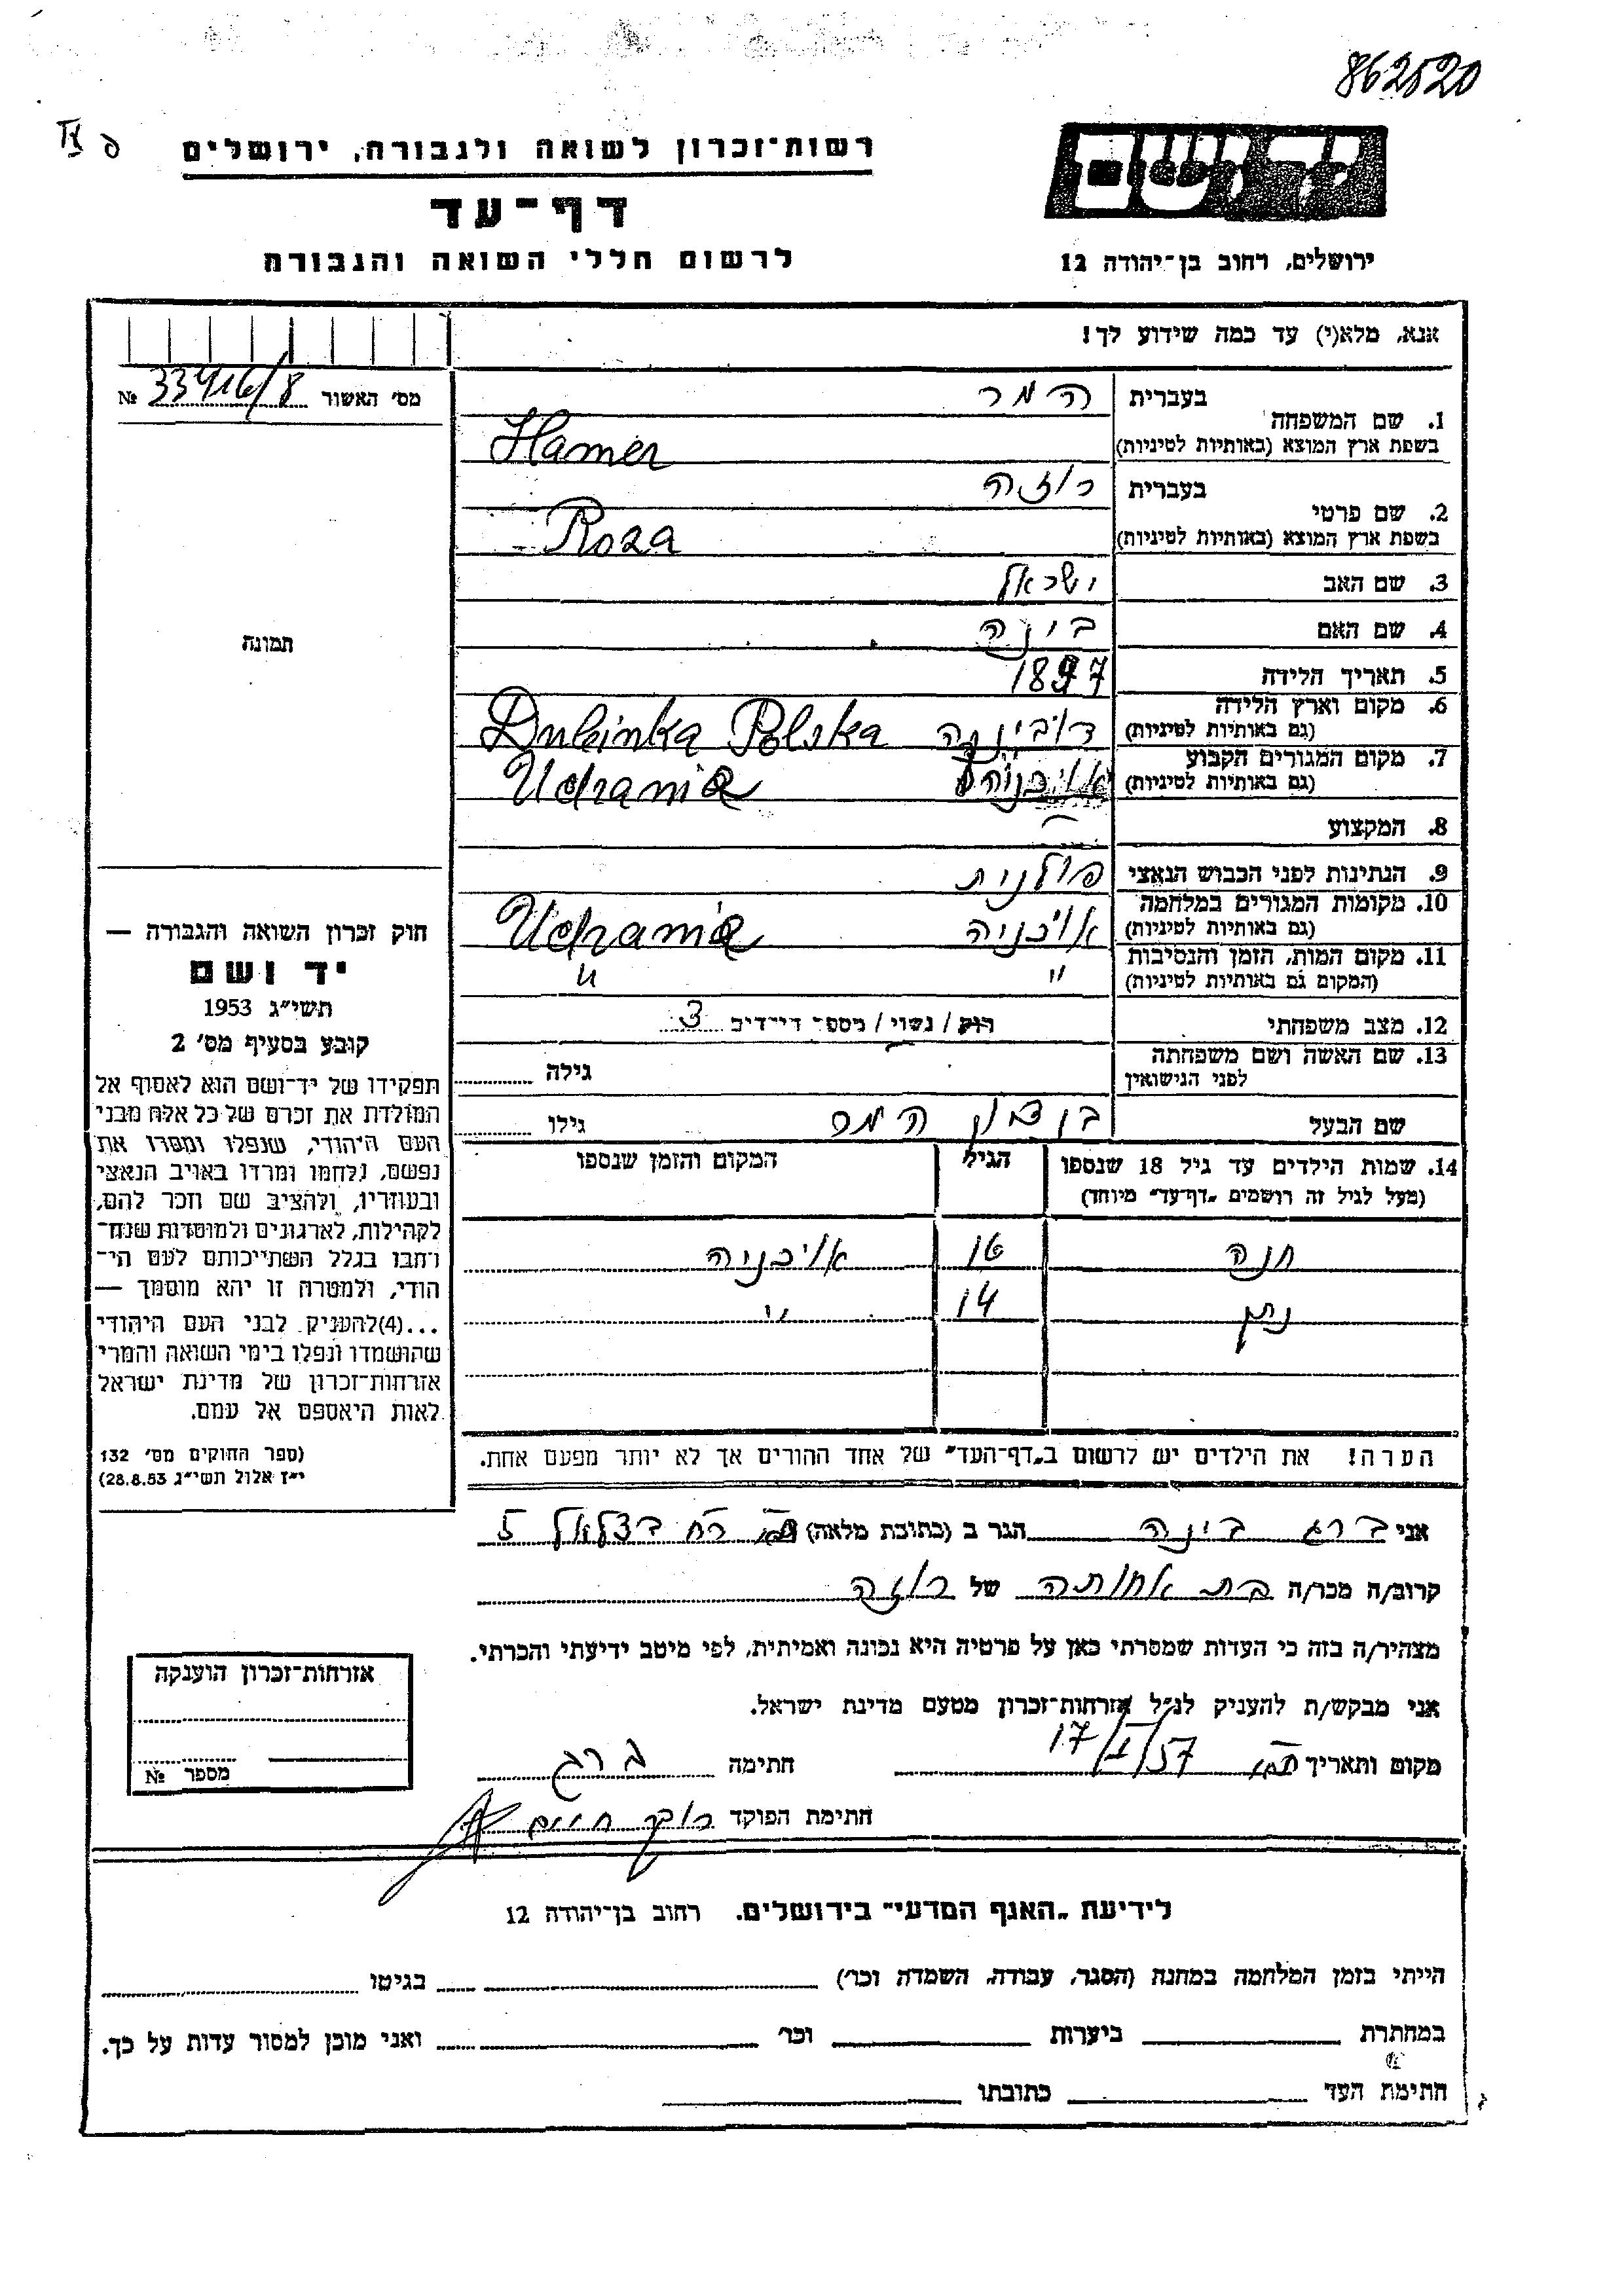 862520
רשות־זכרון לשואה ולגבורה, ירושלים
דף־עד
לרשום חללי השואה והגבורה
יד ושם
ירושלים, רחוב בן־יהודה 12
אנא, מלא(י) עד כמה שידוע לך!
מס׳ האשור 33416/8 №
תמונה
1. שם המשפחה בעברית המר
בשפת ארץ המוצא (באותיות לטיניות) Hamer
2. שם פרטי בעברית רוזה
בשפת ארץ המוצא (באותיות לטיניות) Roza
3. שם האב ישראל
4. שם האם בינה
5. תאריך הלידה 1897
6. מקום וארץ הלידה
(גם באותיות לטיניות) דובינקה Dubinka Polska
7. מקום המגורים הקבוע
(גם באותיות לטיניות)
8. המקצוע —
9. הנתינות לפני הכבוש הנאצי פולנית
10. מקומות המגורים במלחמה
(גם באותיות לטיניות)
11. מקום המות, הזמן והנסיבות
(המקום גם באותיות לטיניות) " "
12. מצב משפחתי רוק / נשוי / מספר הילדים 3
13. שם האשה ושם משפחתה
לפני הנישואין גילה
שם הבעל בן ציון המר גילו
14. שמות הילדים עד גיל 18 שנספו הגיל המקום והזמן שנספו
(מעל לגיל זה רושמים „דף־עד" מיוחד)
חנה 16
נתן 14 "
הערה! את הילדים יש לרשום ב„דף־העד" של אחד ההורים אך לא יותר מפעם אחת.
חוק זכרון השואה והגבורה —
יד ושם
תשי״ג 1953
קובע בסעיף מס׳ 2
תפקידו של יד־ושם הוא לאסוף אל
המולדת את זכרם של כל אלה מבני
העם היהודי, שנפלו ומסרו את
נפשם, נלחמו ומרדו באויב הנאצי
ובעוזריו, ולהציב שם וזכר להם,
לקהילות, לארגונים ולמוסדות שנח־
רבו בגלל השתייכותם לעם הי־
הודי, ולמטרה זו יהא מוסמך —
...(4)להעניק לבני העם היהודי
שהושמדו ונפלו בימי השואה והמרי
אזרחות־זכרון של מדינת ישראל
לאות היאספם אל עמם.
(ספר החוקים מס׳ 132
י״ז אלול תשי״ג 28.8.53)
אני ברג בינה הגר ב (כתובת מלאה) רח בצלאל 5
קרוב/ה מכר/ה בת אחותה של רוזה
מצהיר/ה בזה כי העדות שמסרתי כאן על פרטיה היא נכונה ואמיתית, לפי מיטב ידיעתי והכרתי.
אני מבקש/ת להעניק לנ״ל אזרחות־זכרון מטעם מדינת ישראל.
מקום ותאריך 17/I/57 חתימה ברג
חתימת הפוקד
אזרחות־זכרון הוענקה
מספר №
לידיעת „האגף המדעי" בירושלים. רחוב בן־יהודה 12
הייתי בזמן המלחמה במחנה (הסגר, עבודה, השמדה וכר׳) בגיטו
במחתרת ביערות וכר׳ ואני מוכן למסור עדות על כך.
חתימת העד כתובתו